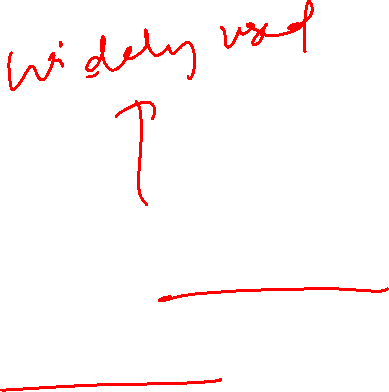 widely used